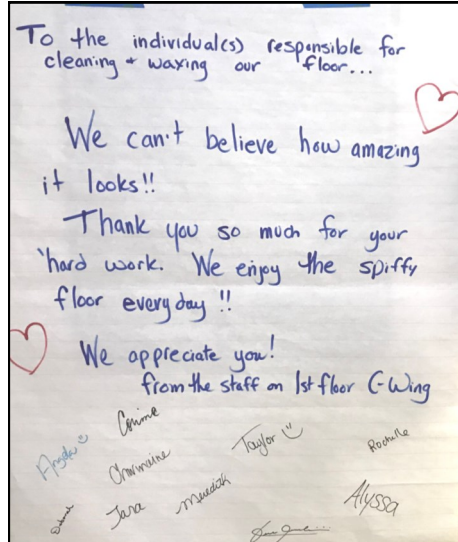 To the individual(s) responsible for
cleaning + waxing our floor...
We can't believe how amazing
it looks!!
Thank you so much for your
hard work. We enjoy the spiffy
floor every day!!
We appreciate you!
from the staff on 1st floor C-Wing
Corinne
Angela
Charmaine
Taylor
Rochelle
Deborah
Tara
Meredith
Alyssa